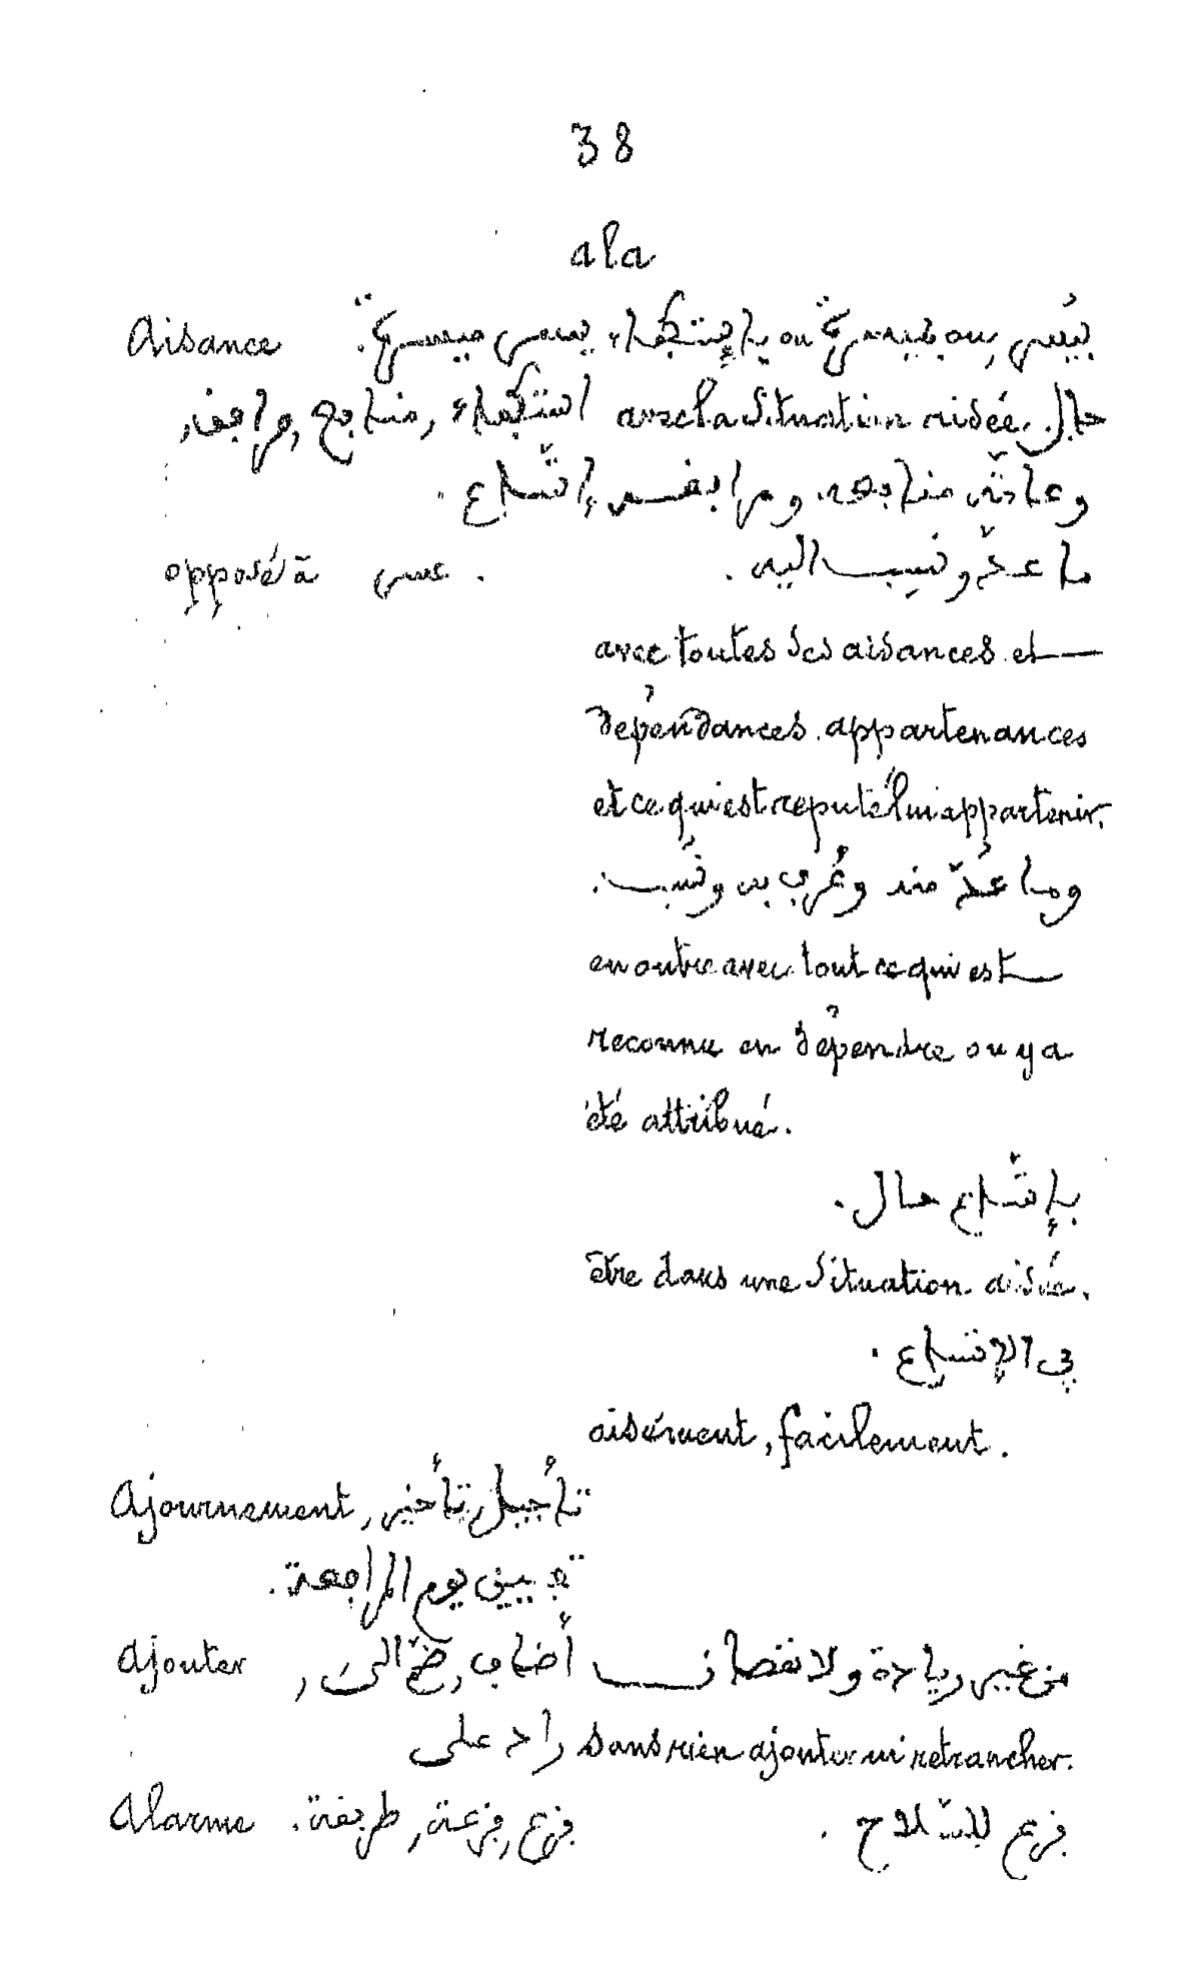 38
ala
Aisance يسر ميسرة. بيسر ou بميسرة ou بإستكفاء
استكفاء, منابع, مرافق, avec la situation aisée. حال
إتّساع. وعامّة منابعه ومرافقه
opposé à عسر. ما عدّ ونسب اليه.
avec toutes ses aisances et
dépendances appartenances
et ce qui est reputé lui appartenir.
وما عُدّ منه وعُرف به ونُسب.
en outre avec tout ce qui est
reconnu en dépendre ou y a
été attribué.
بإتّساع حال.
être dans une situation aisée.
في الإتساع.
aisément, facilement.
Ajournement, تأجيل, تأخير
تعيين يوم المرافعة.
Ajouter أضاف, ضمّ الى, من غير زيادة ولا نقصان
زاد على sans rien ajouter ni retrancher.
Alarme فزع, فزعة, طريقة. فزع للسّلاح.